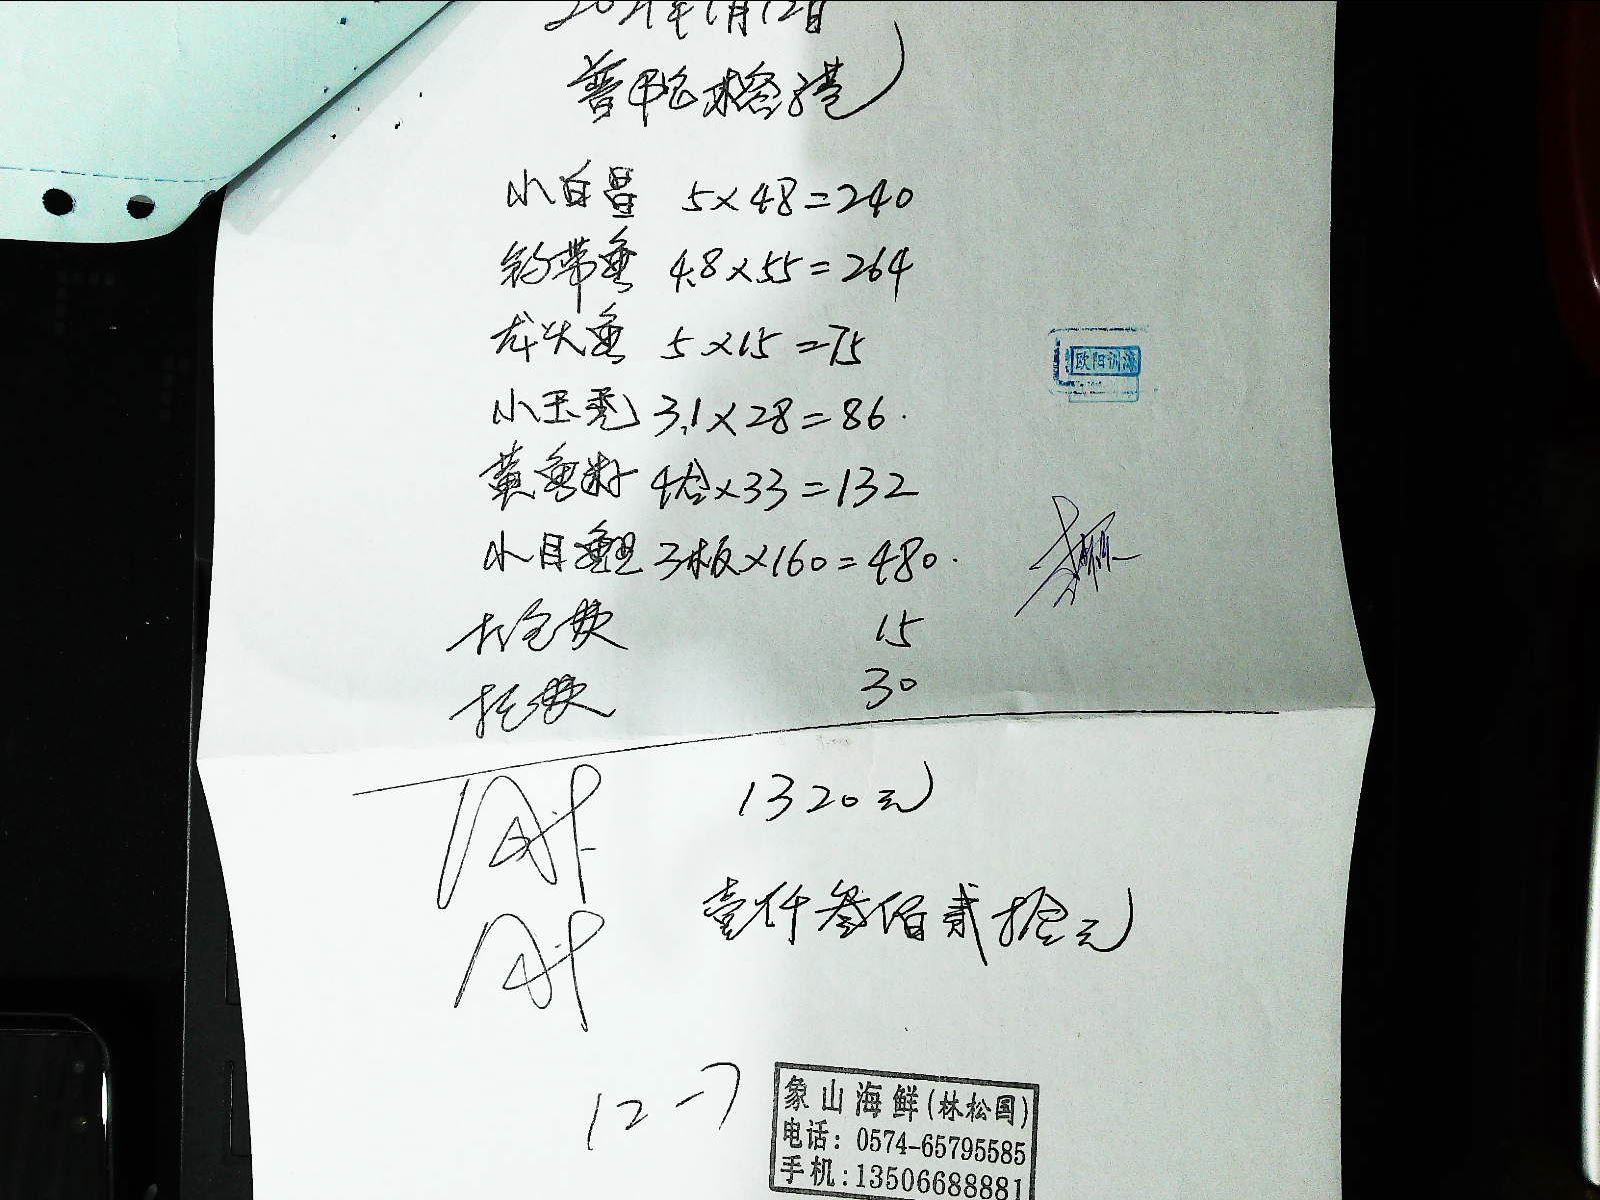 2021年1月12日
小白鲳 5×48=240
钓带鱼 4.8×55=264
龙头鱼 5×15=75
欧阳训
小玉秃 3.1×28=86.
黄鱼籽 4盒×33=132
小目鱼旦 3板×160=480.
打包费 15
托费 30
1320元
壹仟叁佰贰拾元
12-7
象山海鲜(林松国)
电话: 0574-65795585
手机:13506688881